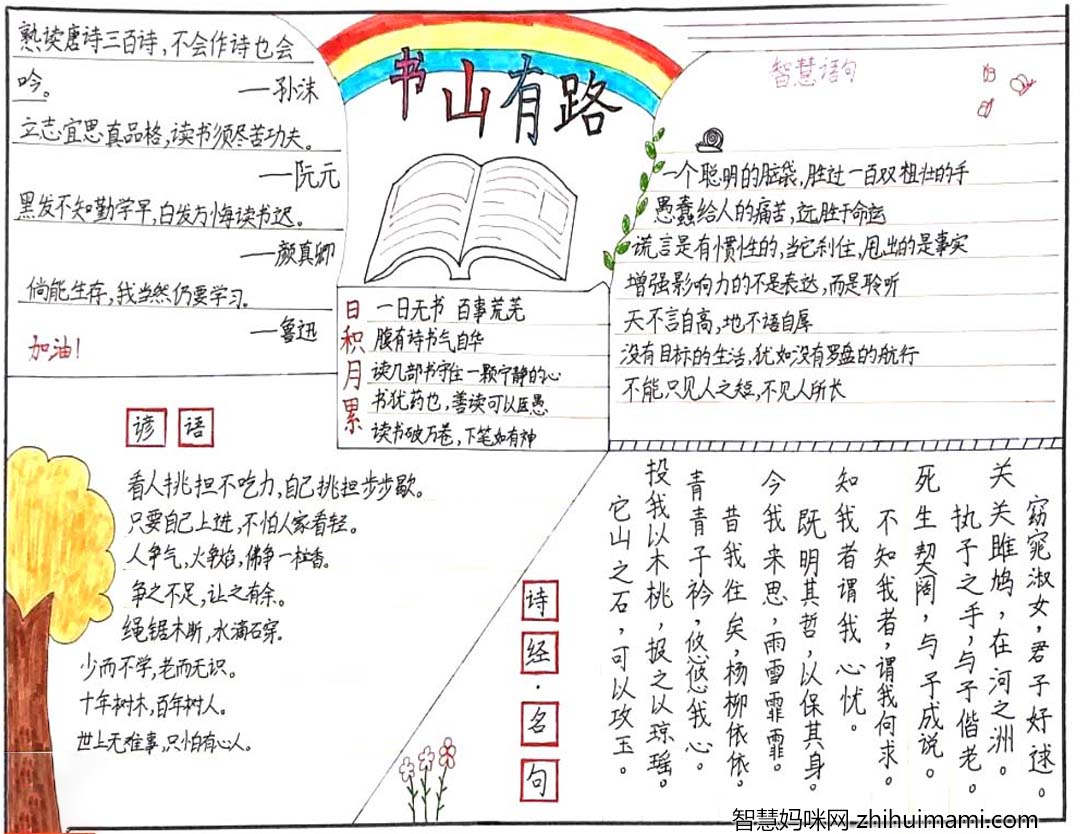 书山有路
熟读唐诗三百诗，不会作诗也会
吟。
—孙沫
立志宜思真品格，读书须尽苦功夫。
—阮元
黑发不知勤学早，白发方悔读书迟。
—颜真卿
倘能生存，我当然仍要学习。
—鲁迅
加油！
日积月累
一日无书 百事荒芜
腹有诗书气自华
读几部书守住一颗宁静的心
书犹药也，善读可以医愚
读书破万卷，下笔如有神
智慧语句
一个聪明的脑袋，胜过一百双粗壮的手
愚蠢给人的痛苦，远胜于命运
谎言是有惯性的，当它刹住，甩出的是事实
增强影响力的不是表达，而是聆听
天不言自高，地不语自厚
没有目标的生活，犹如没有罗盘的航行
不能只见人之短，不见人所长
谚语
看人挑担不吃力，自己挑担步步歇。
只要自己上进，不怕人家看轻。
人争气，火争焰，佛争一柱香。
争之不足，让之有余。
绳锯木断，水滴石穿。
少而不学，老而无识。
十年树木，百年树人。
世上无难事，只怕有心人。
诗经·名句
窈窕淑女，君子好逑。
关关雎鸠，在河之洲。
执子之手，与子偕老。
死生契阔，与子成说。
不知我者，谓我何求。
知我者谓我心忧。
既明其哲，以保其身。
今我来思，雨雪霏霏。
昔我往矣，杨柳依依。
青青子衿，悠悠我心。
投我以木桃，报之以琼瑶。
它山之石，可以攻玉。
智慧妈咪网-zhihuimami.com